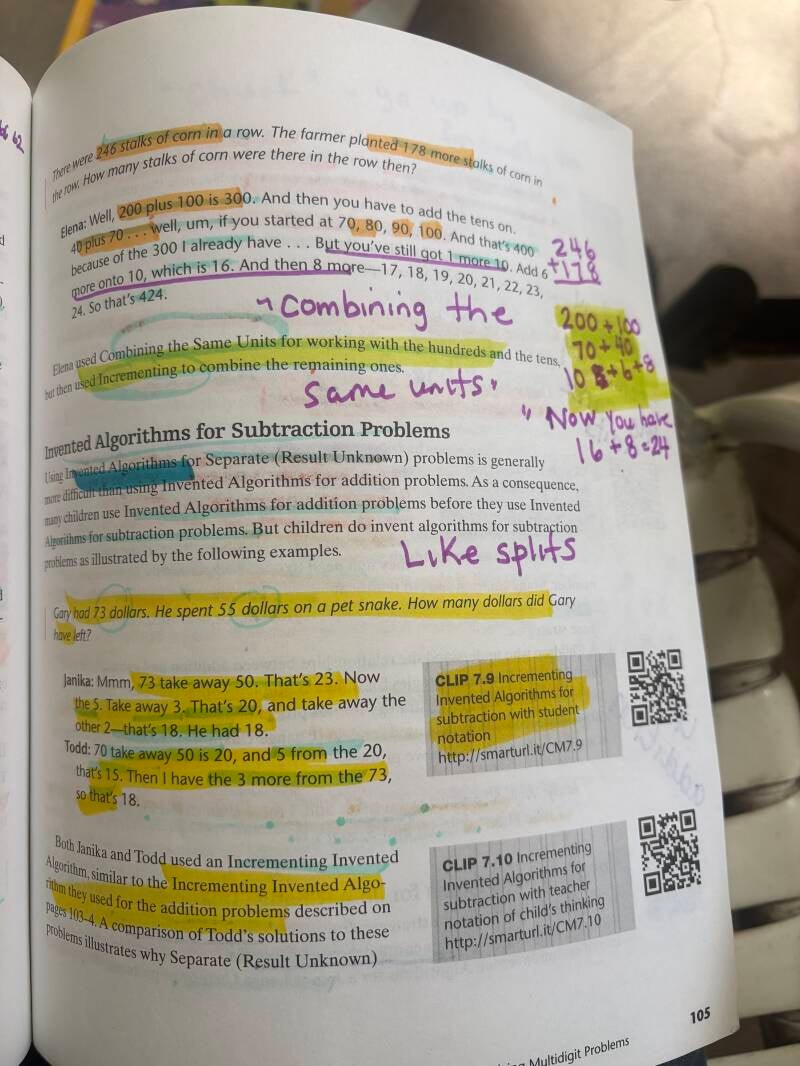 There were 246 stalks of corn in a row. The farmer planted 178 more stalks of corn in
the row. How many stalks of corn were there in the row then?
Elena: Well, 200 plus 100 is 300. And then you have to add the tens on.
40 plus 70 . . . well, um, if you started at 70, 80, 90, 100. And that's 400
because of the 300 I already have . . . But you've still got 1 more 10. Add 6
more onto 10, which is 16. And then 8 more—17, 18, 19, 20, 21, 22, 23,
24. So that's 424.
246
+178
Combining the
same units"
200 + 100
70 + 40
10 + 6 + 8
" Now you have
16 + 8 = 24
Elena used Combining the Same Units for working with the hundreds and the tens,
but then used Incrementing to combine the remaining ones.
Invented Algorithms for Subtraction Problems
Using Invented Algorithms for Separate (Result Unknown) problems is generally
more difficult than using Invented Algorithms for addition problems. As a consequence,
many children use Invented Algorithms for addition problems before they use Invented
Algorithms for subtraction problems. But children do invent algorithms for subtraction
problems as illustrated by the following examples.
Like splits
Gary had 73 dollars. He spent 55 dollars on a pet snake. How many dollars did Gary
have left?
Janika: Mmm, 73 take away 50. That's 23. Now
the 5. Take away 3. That's 20, and take away the
other 2—that's 18. He had 18.
Todd: 70 take away 50 is 20, and 5 from the 20,
that's 15. Then I have the 3 more from the 73,
so that's 18.
CLIP 7.9 Incrementing
Invented Algorithms for
subtraction with student
notation
http://smarturl.it/CM7.9
Both Janika and Todd used an Incrementing Invented
Algorithm, similar to the Incrementing Invented Algo-
rithm they used for the addition problems described on
pages 103–4. A comparison of Todd's solutions to these
problems illustrates why Separate (Result Unknown)
CLIP 7.10 Incrementing
Invented Algorithms for
subtraction with teacher
notation of child's thinking
http://smarturl.it/CM7.10
Multidigit Problems
105